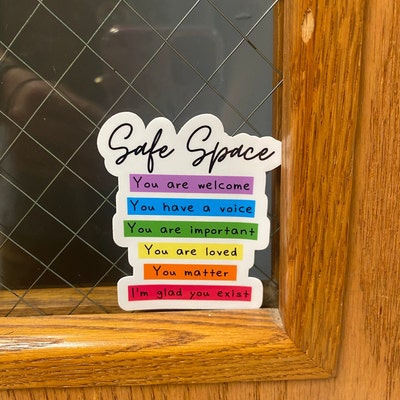 Safe Space
You are welcome
You have a voice
You are important
You are loved
You matter
I'm glad you exist